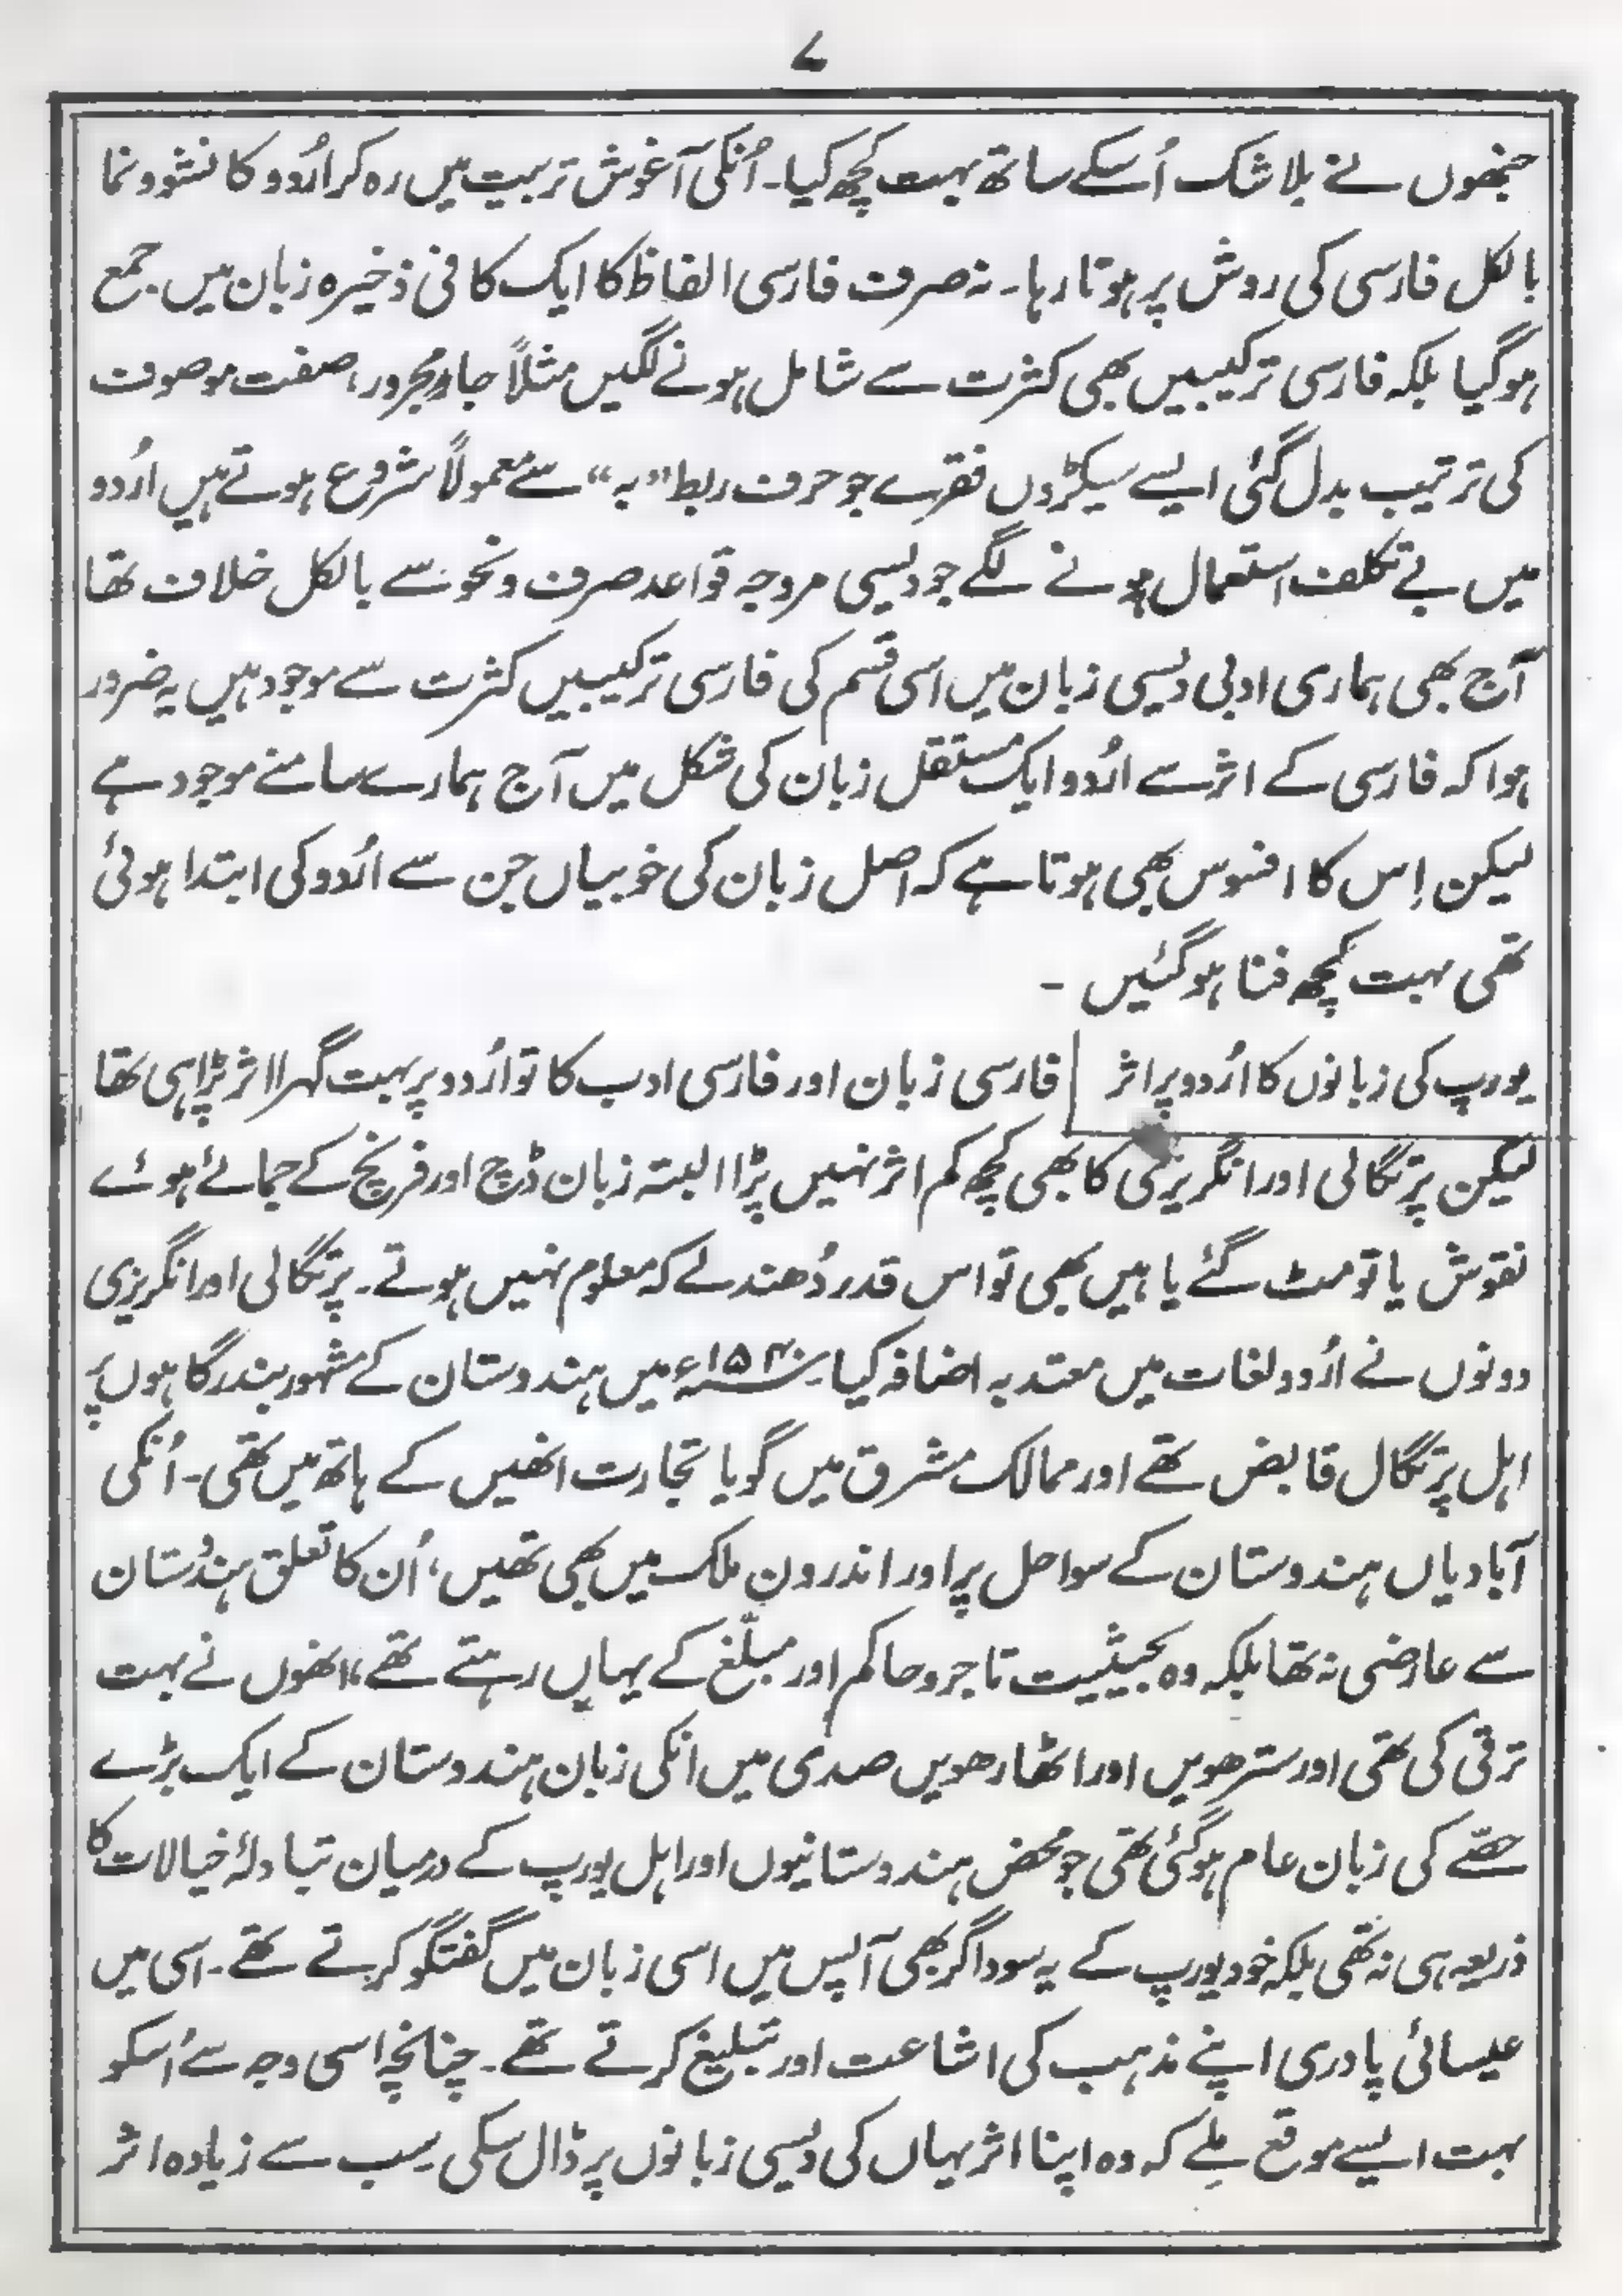 ۷
جنھوں نے بلاشک اُسکے ساتھ بہت کچھ کیا۔ اُنکی آغوش تربیت میں رہ کر اُردو کا نشوونما
بالکل فارسی کی روش پر ہوتا رہا۔ نہ صرف فارسی الفاظ کا ایک کافی ذخیرہ زبان میں جمع
ہوگیا بلکہ فارسی ترکیبیں بھی کثرت سے شامل ہونے لگیں مثلاً جار و مجرور، صفت موصوف
کی ترتیب بدل گئی ایسے سیکڑوں فقرے جو حرف ربط "بہ" سے معمولاً شروع ہوتے ہیں اردو
میں بے تکلف استعمال ہونے لگے جو دیسی مروجہ قواعد صرف و نحو سے بالکل خلاف تھا
آج بھی ہماری ادبی دیسی زبان میں اسی قسم کی فارسی ترکیبیں کثرت سے موجود ہیں یہ ضرور
ہوا کہ فارسی کے اثر سے اُردو ایک مستقل زبان کی شکل میں آج ہمارے سامنے موجود ہے
لیکن اِس کا افسوس بھی ہوتا ہے کہ اصل زبان کی خوبیاں جن سے اُردو کی ابتدا ہوئی
تھی بہت کچھ فنا ہوگئیں ۔
یورپ کی زبانوں کا اُردو پر اثر | فارسی زبان اور فارسی ادب کا تو اُردو پر بہت گہرا اثر پڑا ہی تھا
لیکن پرتگالی اور انگریزی کا بھی کچھ کم اثر نہیں پڑا البتہ زبان ڈچ اور فرنچ کے جمائے ہوئے
نقوش یا تو مٹ گئے یا ہیں بھی تو اس قدر دُھندلے کہ معلوم نہیں ہوتے۔ پرتگالی اور انگریزی
دونوں نے اُردو لغات میں معتدبہ اضافہ کیا۔ ۱۵۴۰ء میں ہندوستان کے مشہور بندرگاہوں پر
اہل پرتگال قابض تھے اور ممالک مشرق میں گویا تجارت انھیں کے ہاتھ میں تھی۔ اُنکی
آبادیاں ہندوستان کے سواحل پر اور اندرون ملک میں بھی تھیں، اُن کا تعلق ہندُستان
سے عارضی نہ تھا بلکہ وہ بحیثیت تاجر و حاکم اور مبلّغ کے یہاں رہتے تھے، انھوں نے بہت
ترقی کی تھی اور سترھویں اور اٹھارھویں صدی میں انکی زبان ہندوستان کے ایک بڑے
حصّے کی زبان عام ہوگئی تھی جو محض ہندوستانیوں اور اہل یورپ کے درمیان تبادلۂ خیالات کا
ذریعہ ہی نہ تھی بلکہ خود یورپ کے یہ سوداگر بھی آپس میں اسی زبان میں گفتگو کرتے تھے۔ اسی میں
عیسائی پادری اپنے مذہب کی اشاعت اور تبلیغ کرتے تھے۔ چنانچہ اسی وجہ سے اُسکو
بہت ایسے موقع مِلے کہ وہ اپنا اثر یہاں کی دیسی زبانوں پر ڈال سکی۔ سب سے زیادہ اثر